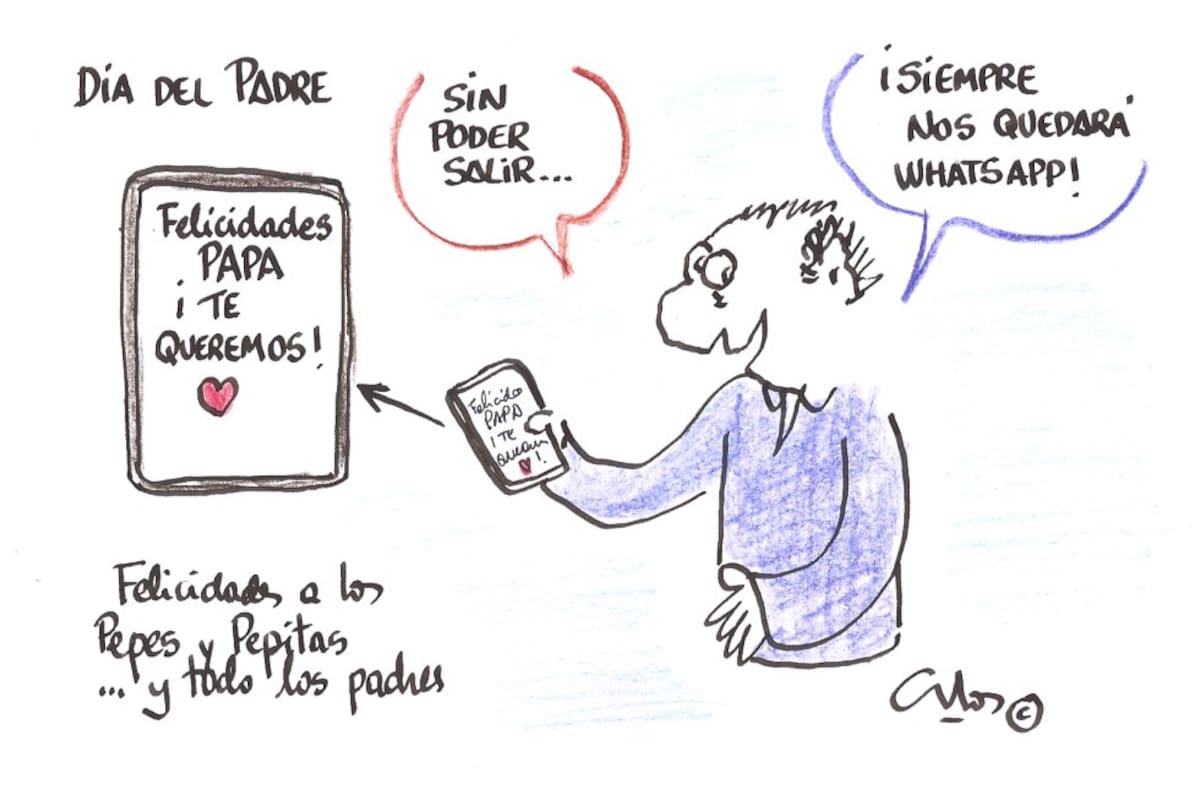 DÍA DEL PADRE
SIN
PODER
SALIR...
¡SIEMPRE
NOS QUEDARÁ
WHATSAPP!
Felicidades
PAPA
¡TE
QUEREMOS!
PAPA
¡TE
!
Felicidades a los
Pepes y Pepitas
... y todo los padres
©